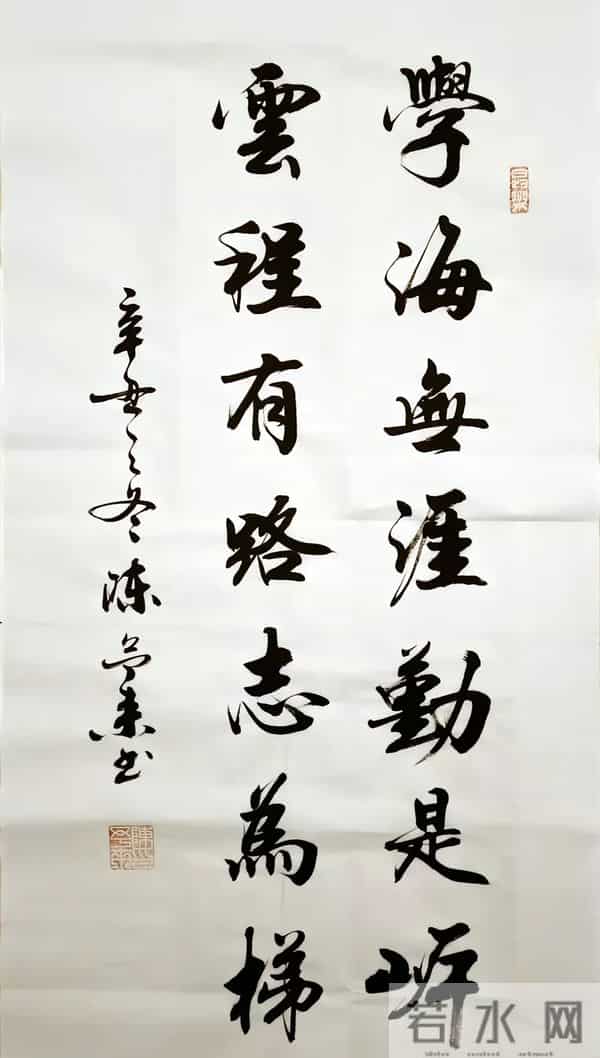 學海無涯勤是岸
雲程有路志為梯
辛丑之冬陳書
若水网